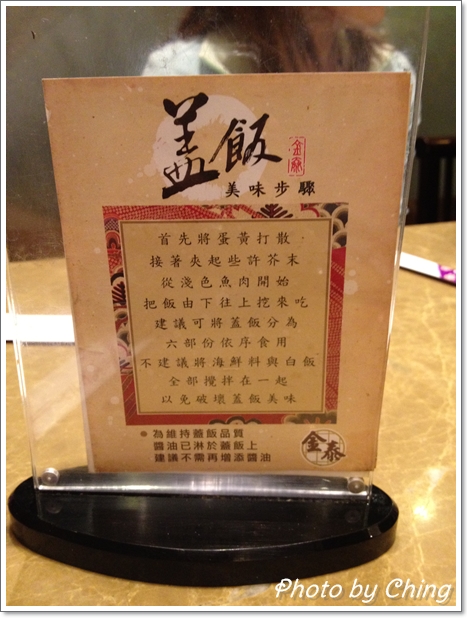 盖飯
金泰
美味步驟
首先將蛋黃打散
接著夾起些許芥末
從淺色魚肉開始
把飯由下往上挖來吃
建議可將蓋飯分為
六部份依序食用
不建議將海鮮料與白飯
全部攪拌在一起
以免破壞蓋飯美味
●為維持蓋飯品質
醬油已淋於蓋飯上
建議不需再增添醬油
金泰
Photo by Ching